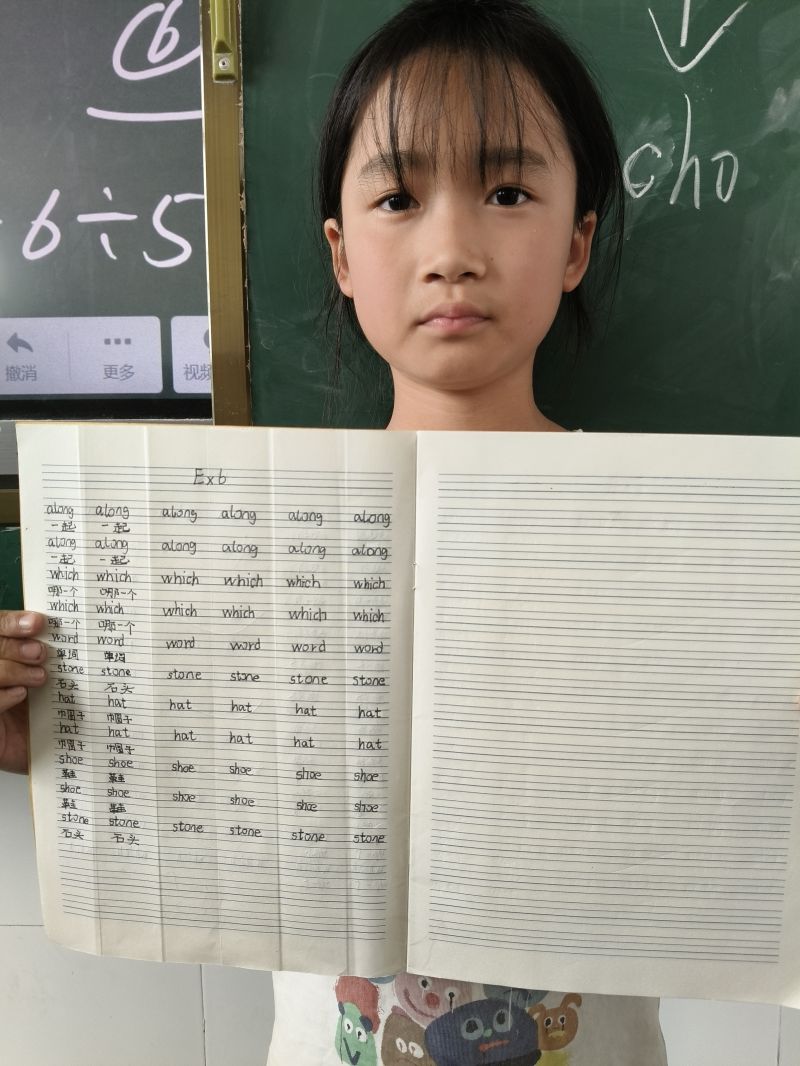 6
6÷5
撤消 更多 视频
cho
Ex6
along along along along along along
一起 一起
along along along along along along
一起 一起
which which which which which which
哪一个 哪一个
which which which which which which
哪一个 哪一个
word word word word word word
单词 单词
stone stone stone stone stone stone
石头 石头
hat hat hat hat hat hat
帽子 帽子
hat hat hat hat hat hat
帽子 帽子
shoe shoe shoe shoe shoe shoe
鞋 鞋
shoe shoe shoe shoe shoe shoe
鞋 鞋
stone stone stone stone stone stone
石头 石头